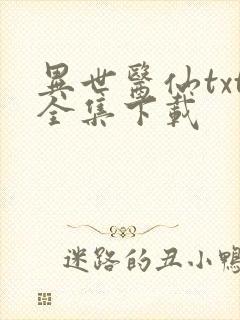 異世醫仙txt
全集下載
迷路的丑小鴨